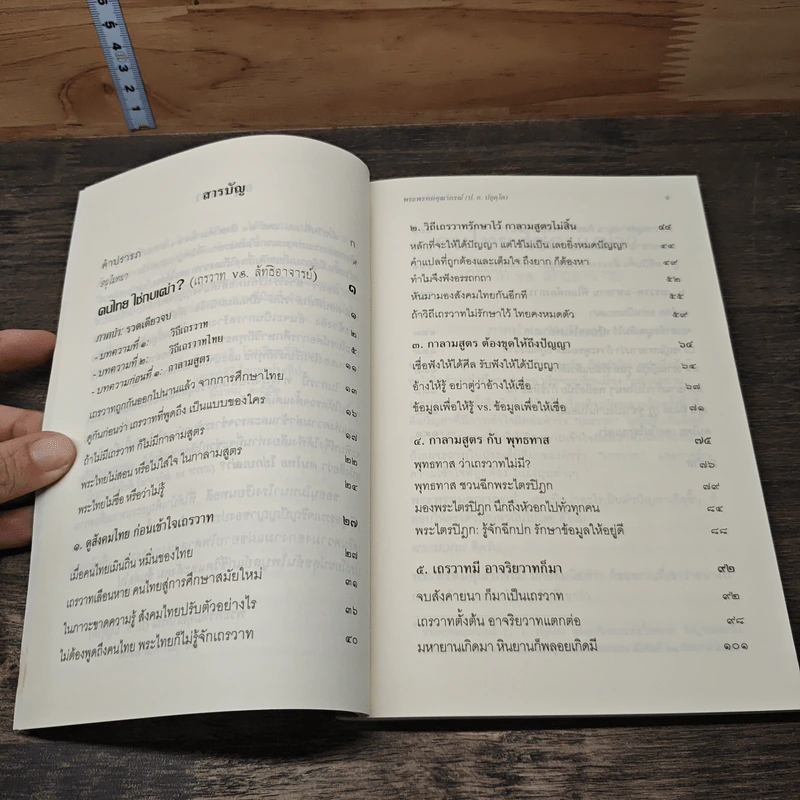 5 5 4 3 2 1
สารบัญ
คำปรารภ ก
อนุโมทนา
คนไทย ใช่กบเฒ่า? (เถรวาท vs. ลัทธิอาจารย์) ๑
ภาคนำ: รวดเดียวจบ ๑
- บทความที่ ๑: วิถีเถรวาท ๒
- บทความที่ ๒: วิถีเถรวาทไทย ๕
- บทความก่อนที่ ๑: กาลามสูตร ๑๑
เถรวาทถูกกันออกไปนานแล้ว จากการศึกษาไทย ๑๓
ดูกันก่อนว่า เถรวาทที่พูดถึง เป็นแบบของใคร ๑๖
ถ้าไม่มีเถรวาท ก็ไม่มีกาลามสูตร ๑๗
พระไทยไม่สอน หรือไม่ใส่ใจ ในกาลามสูตร ๒๒
พระไทยไม่ซื่อ หรือว่าไม่รู้ ๒๔
๑. ดูสังคมไทย ก่อนเข้าใจเถรวาท ๒๗
เมื่อคนไทยเมินถิ่น หมิ่นของไทย ๒๗
เถรวาทเลือนหาย คนไทยสู่การศึกษาสมัยใหม่ ๓๑
ในภาวะขาดความรู้ สังคมไทยปรับตัวอย่างไร ๓๖
ไม่ต้องพูดถึงคนไทย พระไทยก็ไม่รู้จักเถรวาท ๔๐
พระพรหมคุณาภรณ์ (ป. อ. ปยุตฺโต)
๒. วิถีเถรวาทรักษาไว้ กาลามสูตรไม่สิ้น ๔๔
หลักที่จะให้ได้ปัญญา แต่ใช้ไม่เป็น เลยยิ่งหมดปัญญา ๔๕
คำแปลที่ถูกต้องและเต็มใจ ถึงยาก ก็ต้องหา ๔๙
ทำไมจึงฟังอรรถกถา ๕๒
หันมามองสังคมไทยกันอีกที ๕๕
ถ้าวิถีเถรวาทไม่รักษาไว้ ไทยคงหมดตัว ๕๙
๓. กาลามสูตร ต้องขุดให้ถึงปัญญา ๖๔
เชื่อฟังให้ได้ศีล รับฟังให้ได้ปัญญา ๖๔
อ้างให้รู้ อย่าดู่ว่าอ้างให้เชื่อ ๖๗
ข้อมูลเพื่อให้รู้ vs. ข้อมูลเพื่อให้เชื่อ ๗๑
๔. กาลามสูตร กับ พุทธทาส ๗๕
พุทธทาส ว่าเถรวาทไม่มี? ๗๖
พุทธทาส ชวนฉีกพระไตรปิฎก ๗๙
มองพระไตรปิฎก นึกถึงหัวอกไปทั่วทุกคน ๘๔
พระไตรปิฎก: รู้จักฉีกปก รักษาข้อมูลให้อยู่ดี ๘๘
๕. เถรวาทมี อาจริยวาทก็มา ๙๒
จบสังคายนา ก็มาเป็นเถรวาท ๙๒
เถรวาทตั้งต้น อาจริยวาทแตกต่อ ๙๘
มหายานเกิดมา หินยานก็พลอยเกิดมี ๑๐๑